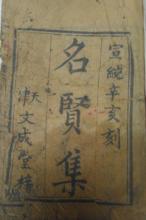 宣統辛亥刻
名賢集
天津文成堂